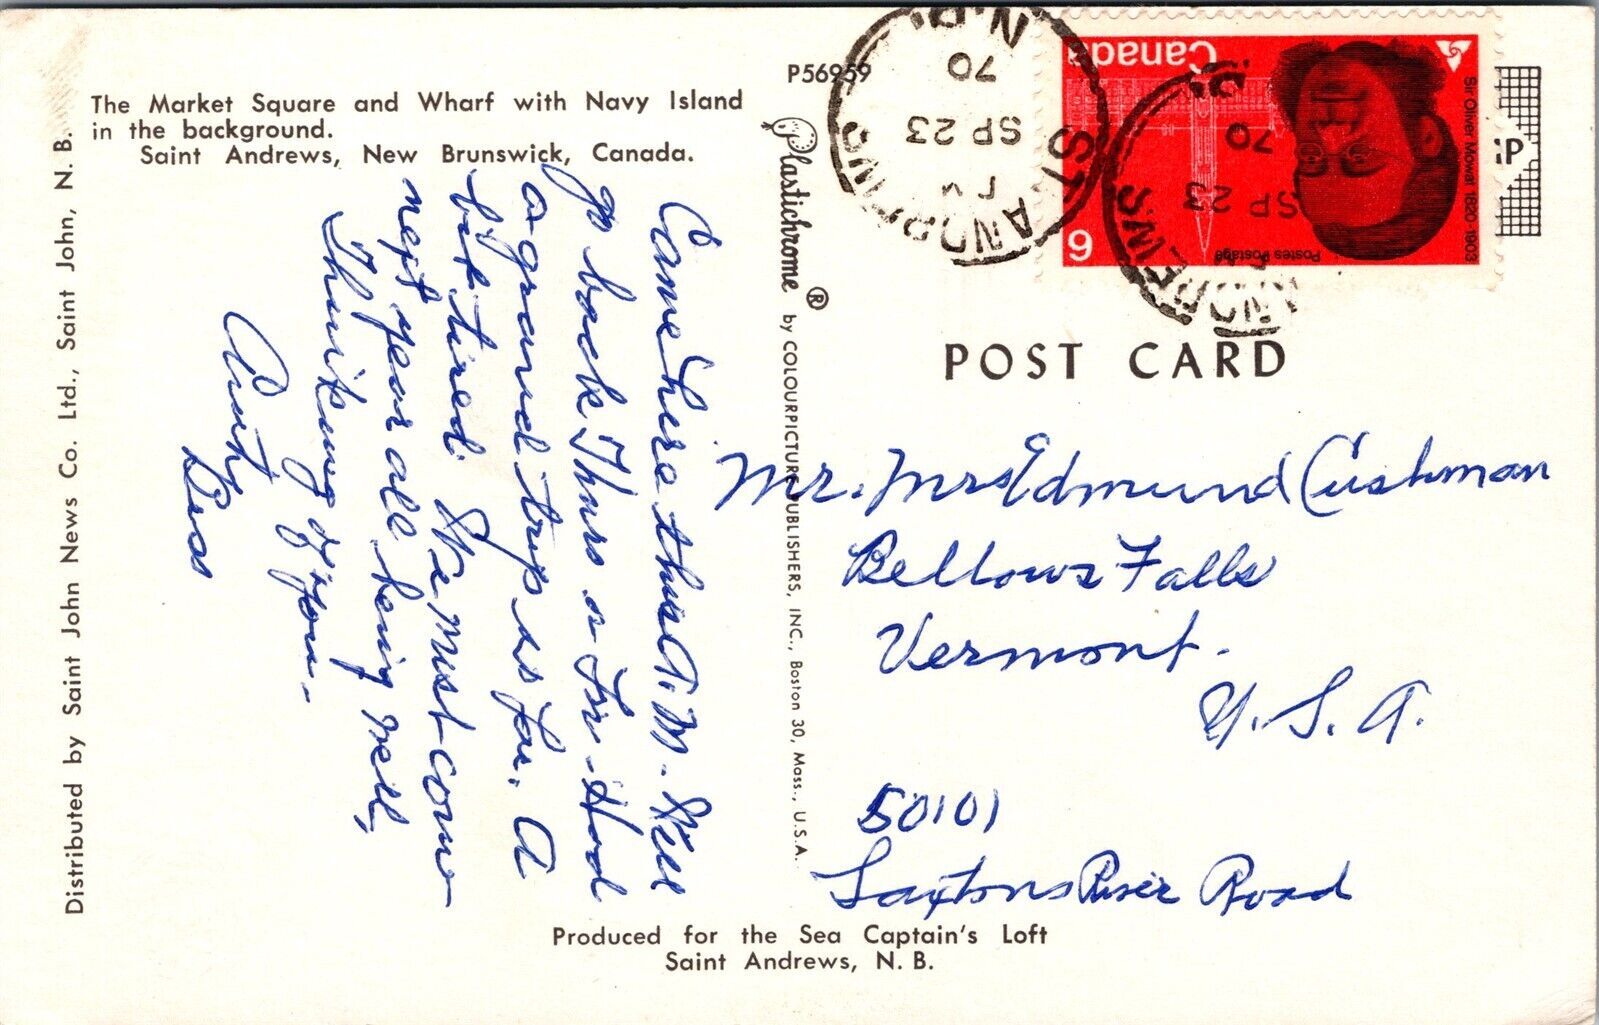 The Market Square and Wharf with Navy Island
in the background.
Saint Andrews, New Brunswick, Canada.
P56959
Distributed by Saint John News Co. Ltd., Saint John, N. B.
Plastichrome® by COLOURPICTURE PUBLISHERS, INC., Boston 30, Mass., U.S.A.
Came here this A.M. Will
go back Thurs or Fri. Had
a grand trip so far. A
bit tired. We must come
next year all being well,
Thinking of you -
Aunt
Canada
6
Postes Postage
Sir Oliver Mowat 1820-1903
ST. ANDREWS
PM
SP 23
70
N.B.
ANDREWS
SP 23
70
POST CARD
Mr. Mrs Edmund Cushman
Bellows Falls
Vermont.
U.S.A.
50101
Saxtons River Road
Produced for the Sea Captain's Loft
Saint Andrews, N. B.